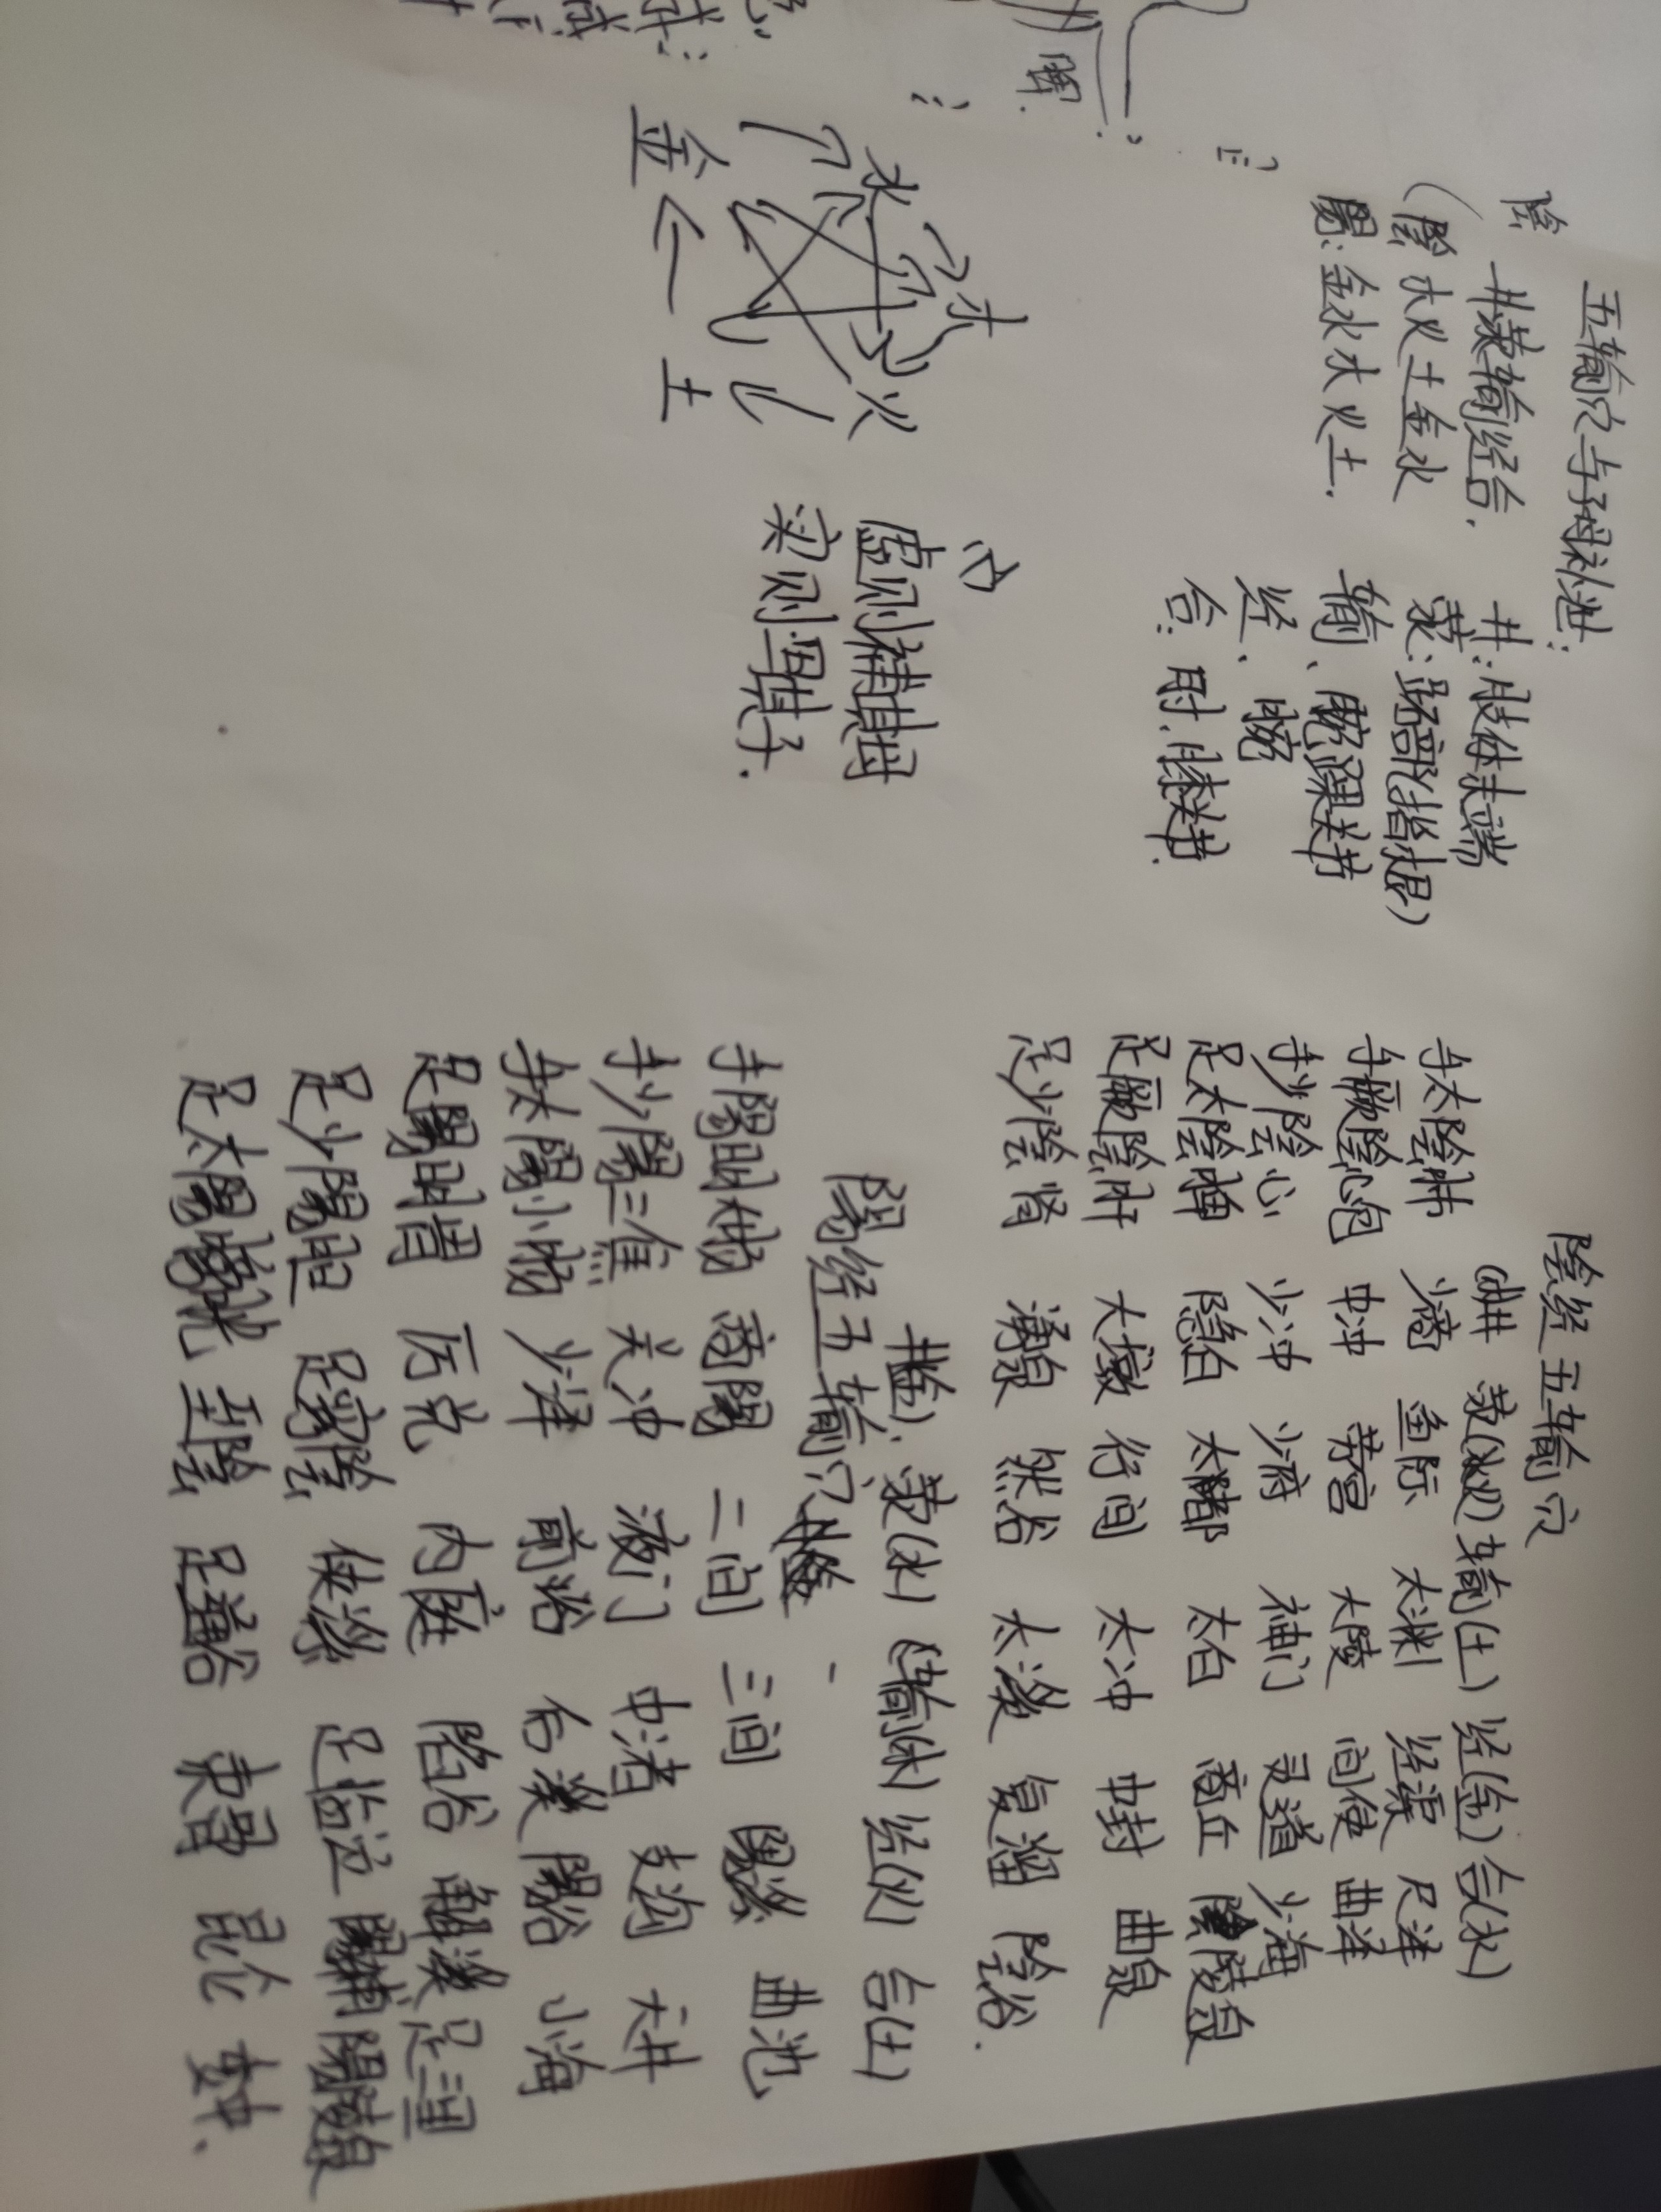 五输穴与子母补泄：
陰
井荥输经合.
(陰 木火土金水
陽：金水木火土.
井：肢体末端
荥：跖部(指根)
输、腕踝关节
经、腕
合：肘.膝关节.
水 木 火 土 金
心
虚则補其母
实则写其子.
陰经五输穴
井 荥(火) 输(土) 经(金) 合(水)
手太陰肺 少商 鱼际 太渊 经渠 尺泽
手厥陰心包 中冲 劳宫 大陵 间使 曲泽
手少陰心 少冲 少府 神门 灵道 少海
足太陰脾 隐白 大都 太白 商丘 陰陵泉
足厥陰肝 大墩 行间 太冲 中封 曲泉
足少陰肾 涌泉 然谷 太溪 复溜 陰谷.
陽经五输穴
井(金). 荥(水) 输(木) 经(火) 合(土)
手陽明大肠 商陽 二间 三间 陽溪 曲池
手少陽三焦 关冲 液门 中渚 支沟 天井
手太陽小肠 少泽 前谷 后溪 陽谷 小海
足陽明胃 厉兑 内庭 陷谷 解溪 足三里
足少陽胆 足窍陰 侠溪 足临泣 陽辅 陽陵泉
足太陽膀胱 至陰 足通谷 束骨 昆仑 委中.